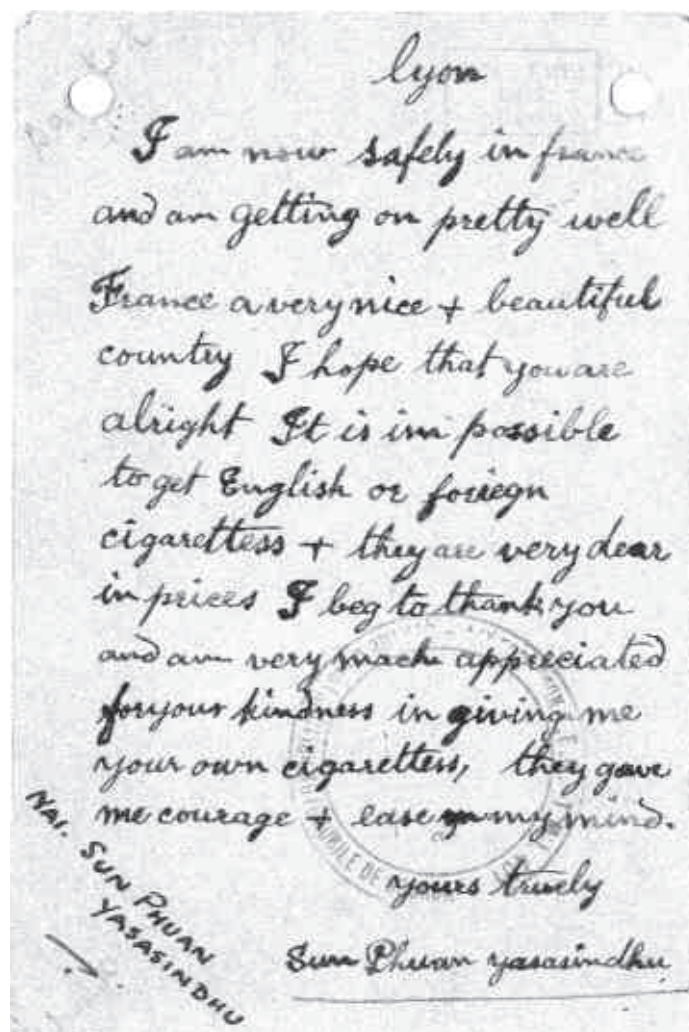 lyon
I am now safely in france
and am getting on pretty well
France a very nice + beautiful
country I hope that you are
alright It is im possible
to get English or foriegn
cigarettess + they are very dear
in prices I beg to thank you
and am very mach appreciated
for your kindness in giving me
your own cigarettess, they gave
me courage + ease my mind.
yours truely
Sun Phuan yasasindhu
NAI. SUN PHUAN
YASASINDHU